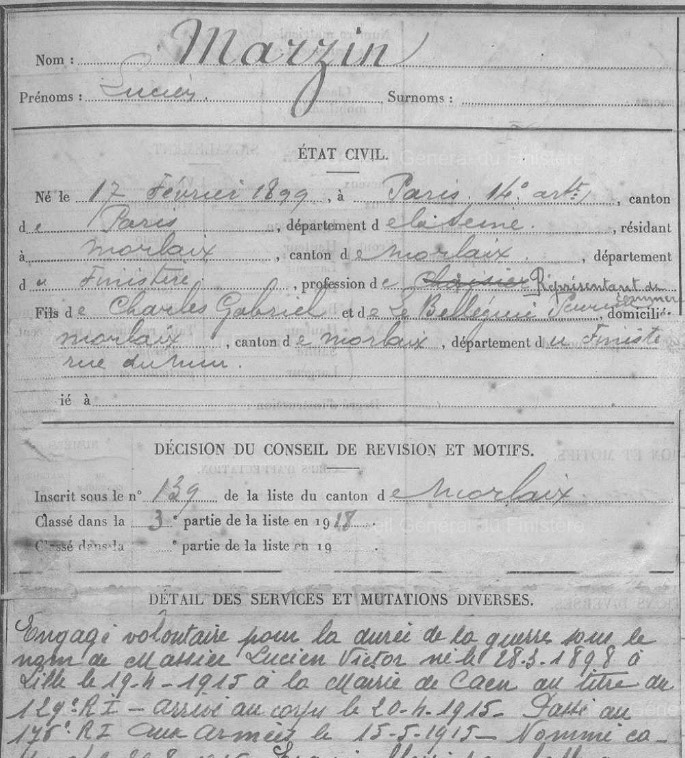 Nom : Marzin
Prénoms : Lucien. Surnoms :
ÉTAT CIVIL.
Né le 17 Février 1899, à Paris 14e arrt, canton
de Paris, département de la Seine., résidant
à Morlaix, canton de Morlaix., département
du Finistère, profession de Représentant de commerce
Fils de Charles Gabriel et de Le Belléguic, domicilié
Morlaix, canton de Morlaix, département du Finistè
rue du mur.
ié à
DÉCISION DU CONSEIL DE REVISION ET MOTIFS.
Inscrit sous le n° 139 de la liste du canton de Morlaix.
Classé dans la 3e partie de la liste en 1918.
Classé dans la e partie de la liste en 19 .
DÉTAIL DES SERVICES ET MUTATIONS DIVERSES.
Engagé volontaire pour la durée de la guerre sous le
nom de Lucien Victor né le 28-3-1898 à
Lille le 19-4-1915 à la Mairie de Caen au titre du
129e RI – arrivé au corps le 20-4-1915 – Passé au
176e RI aux Armées le 15-5-1915 – Nommé ca-